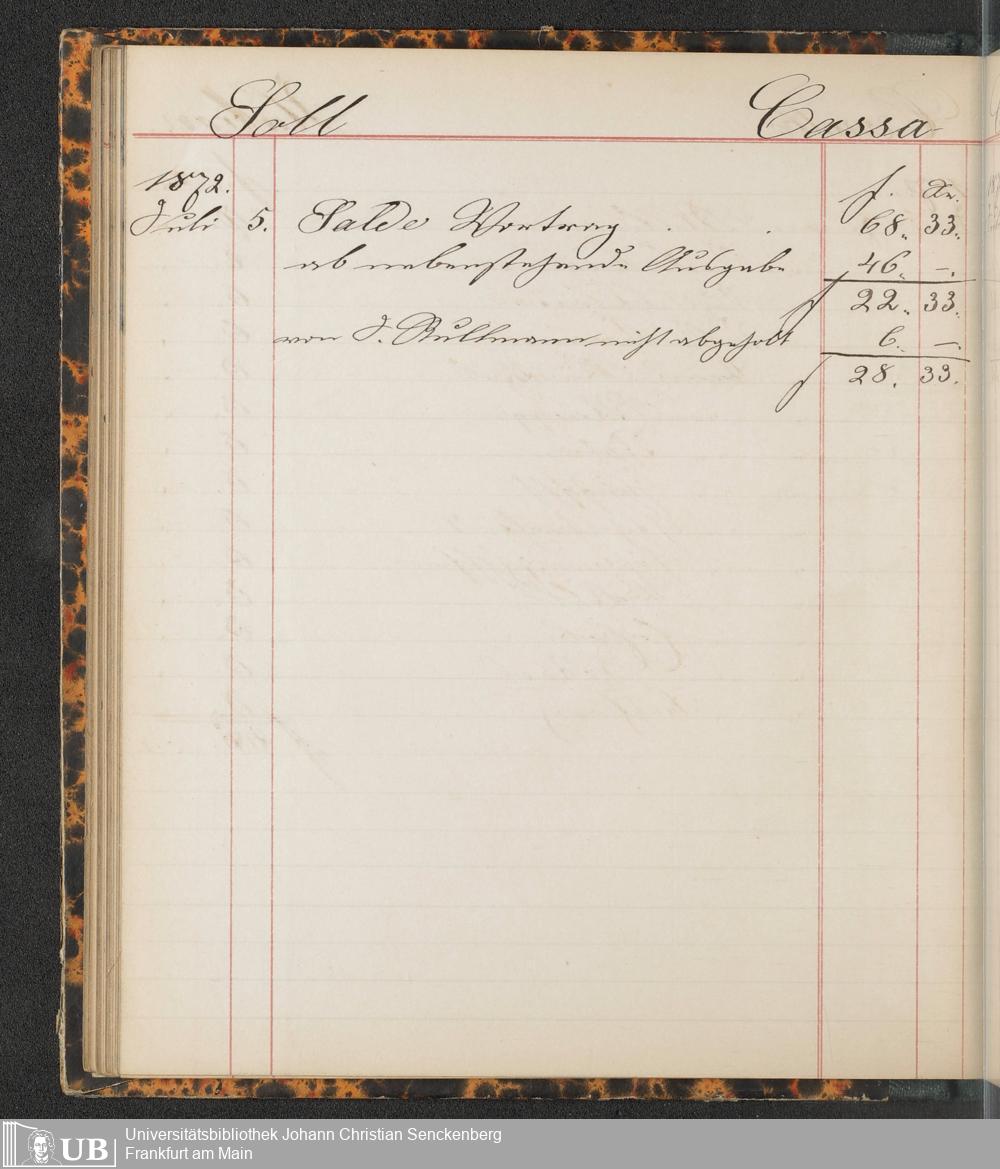 Soll Cassa
1872. f. Xr.
Juli 5. Saldo Vortrag . . 68. 33.
ab nebenstehende Ausgabe 46. –.
f 22. 33.
von J. Rullmann nicht abgeholt 6. –.
f 28. 33.
UB Universitätsbibliothek Johann Christian Senckenberg
Frankfurt am Main